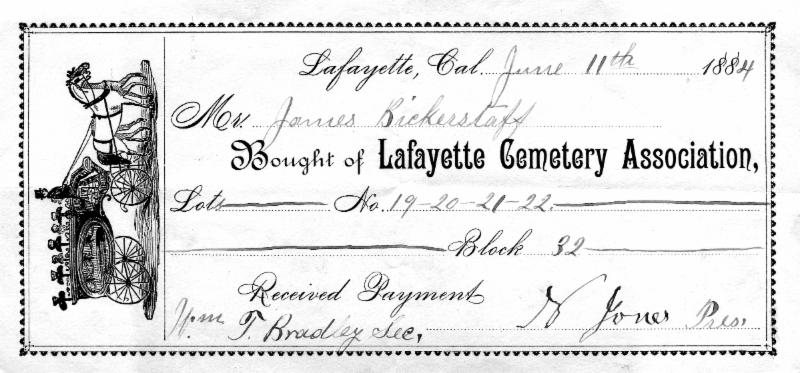 Lafayette, Cal. June 11th 1884
Mr. James Bickerstaff
Bought of Lafayette Cemetery Association,
Lots No. 19-20-21-22.
Block 32
Received Payment
Wm T. Bradley Sec, N Jones Pres.